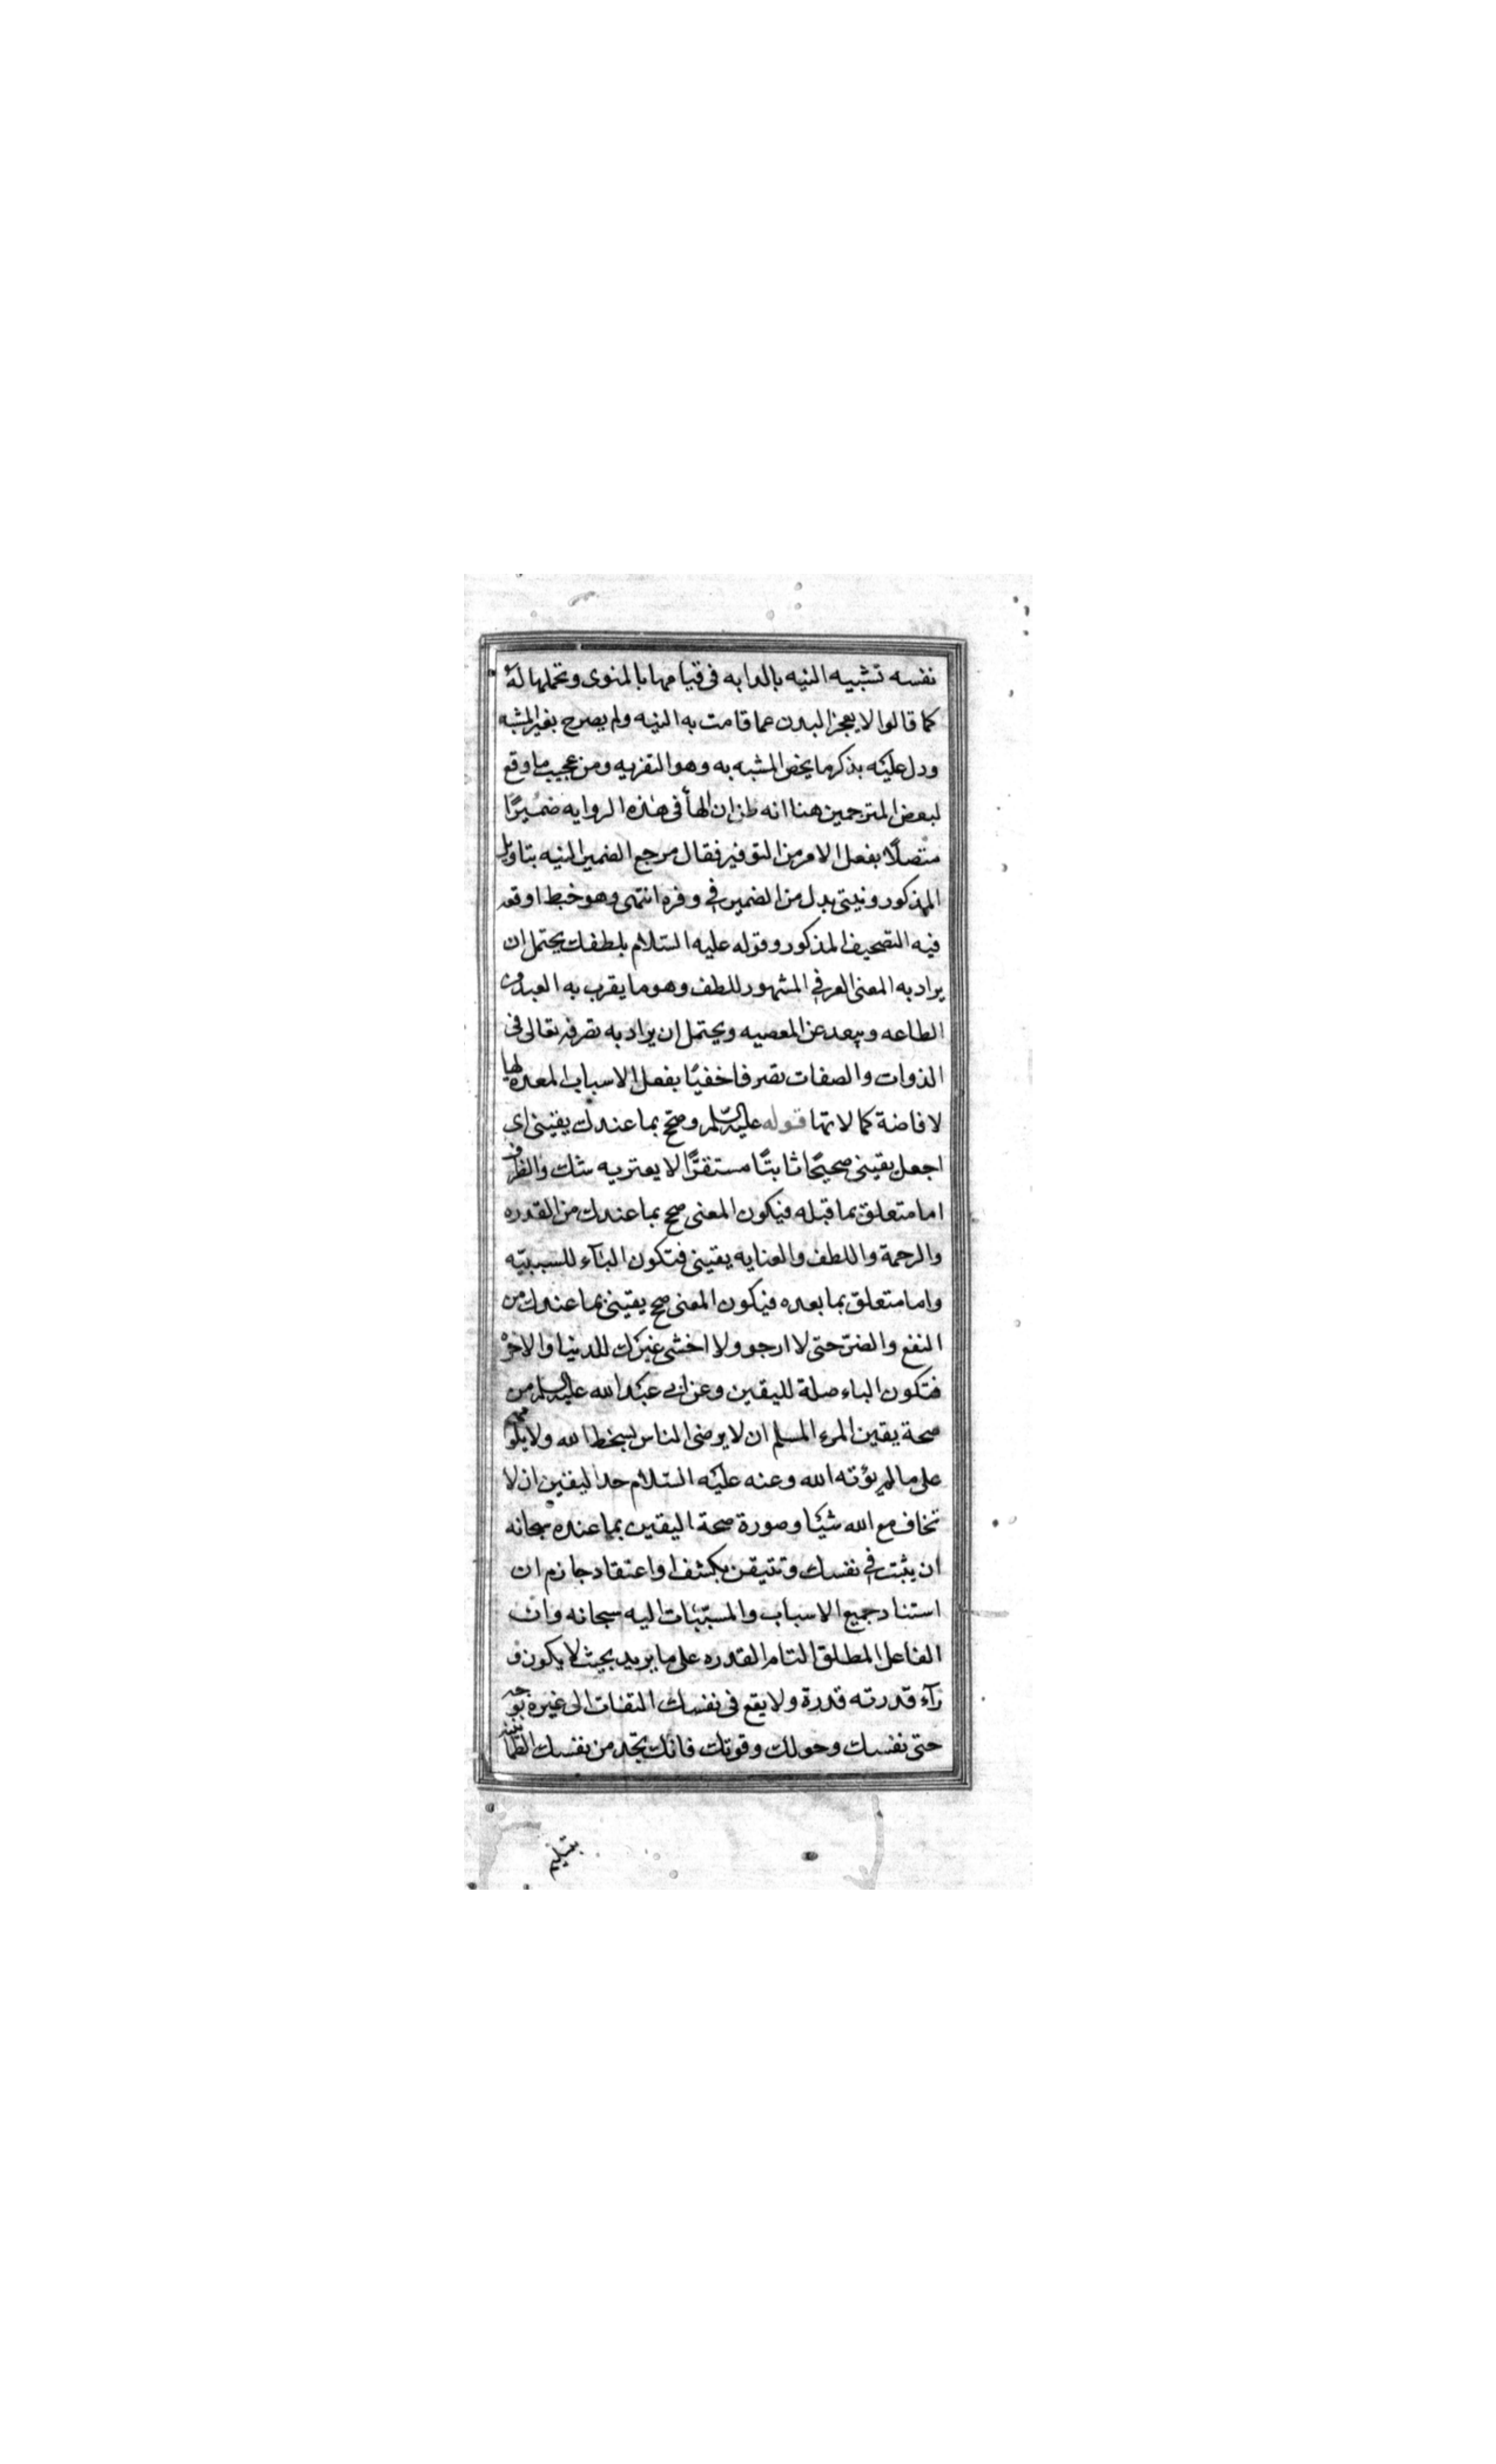 نفسه تشبيه النيه بالدابه فى قيامها بالمنوى وتحملها له
كما قالوا لا يعجز البدن عما قامت به النيه ولم يصرح بغير المشبه
ودل عليه بذكر ما يخص المشبه به وهو التفزيه ومن عجيب ما وقع
لبعض المترجمين هنا انه ظن ان الهأ فى هذه الروايه ضميرًا
متصلًا بفعل الامر من التوفير فقال مرجع الضمير النيه بتاويل
المذكور ونيتى بدل من الضمير فى وفره انتهى وهو خبط اوقعه
فيه التصحيف المذكور وقوله عليه السلام بلطفك يحتمل ان
يراد به المعنى العرفى المشهور للطف وهو ما يقرب به العبد من
الطاعه ويبعد عن المعصيه ويحتمل ان يراد به تصرفه تعالى فى
الذوات والصفات تصرفا خفيًا بفعل الاسباب المعده لها
لافاضة كمالاتها قوله عليه السلم وصحح بما عندك يقينى اى
اجعل يقينى صحيحًا ثابتًا مستقرًا لا يعتريه شك والظرف
اما متعلق بما قبله فيكون المعنى صحح بما عندك من القدره
والرحمة واللطف والعنايه يقينى فتكون البآء للسببيّه
واما متعلق بما بعده فيكون المعنى صحح يقينى بما عندك من
النفع والضرّ حتى لا ارجو ولا اخشى غيرك للدنيا والاخرة
فتكون الباء صلة لليقين وعن ابى عبد الله عليه السلم من
صحة يقين المرء المسلم ان لا يرضى الناس بسخط الله ولا يلومهم
على ما لم يؤته الله وعنه عليه السلام حد اليقين ان لا
تخاف مع الله شيئا وصورة صحة اليقين بما عنده سبحانه
ان يثبت فى نفسك وتتيقن بكشف او اعتقاد جازم ان
استناد جميع الاسباب والمسبّبات اليه سبحانه وان
الفاعل المطلق التام القدره على ما يريد بحيث لا يكون و
رآء قدرته قدرة ولا يقع فى نفسك التفات الى غيره بوجه
حتى نفسك وحولك وقوتك فانك تجد من نفسك الطمأنينه